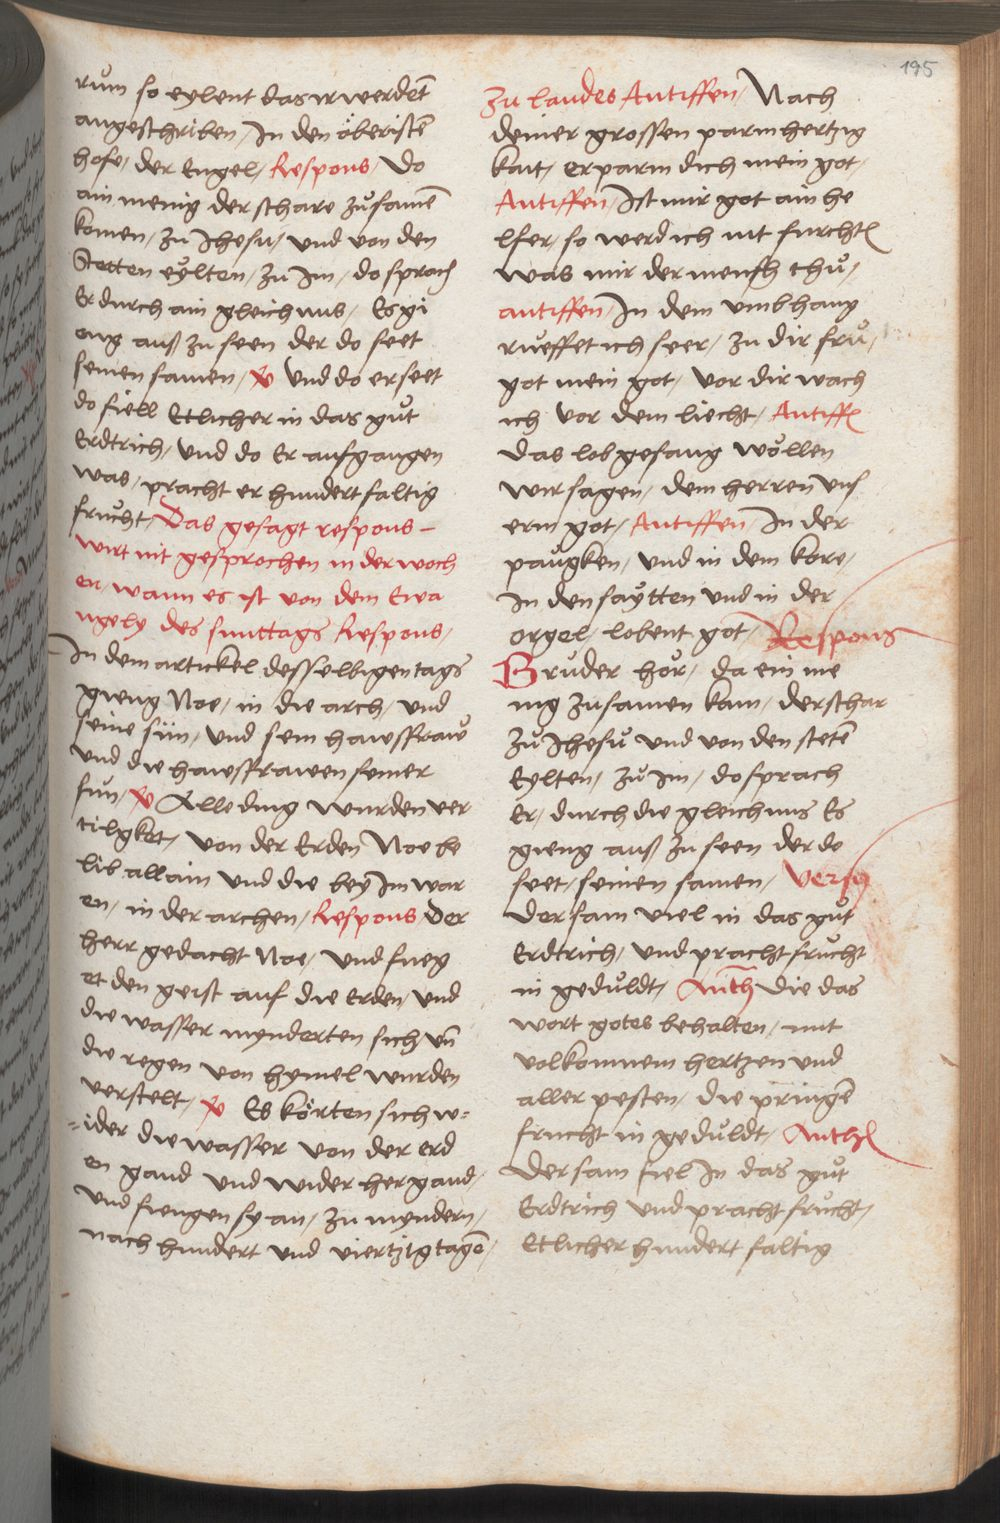 195
rum so eylent das ir werdet̄
angeschriben / In den öberistē
hofe / der Engel / Respons / Do
ain menig der schare zůsamē
komen / zu Jhesu / und von den
Stetten eÿlten / zu Im / do sprach
Er durch ain gleichnus / Es gi
eng auß zu seen der do seet
seinen samen / ℣ Und do er seet
do fiell Etlicher in das gůt
Erdtrich / und do Er aufgangen
was / pracht er hundertfaltig
frucht / Das gesagt respons –
wirt nit gesprochen in der woch
en / wann es ist von dem Ewa
ngely des sunttags Respons /
In dem artickel desselbigen tags
gieng Noe / in die arch / und
seine sün / und sein hawsfraẘ
und die hawsfrawen seiner
sun / ℣ Alle ding wurden ver
tilgket / von der Erden Noe be
lib allain und die beÿ Im war
en / in der archen / Respons / Der
herr gedacht Noe / und fueg
et den geist auf die Erden / und
die wasser mynderten sich / vn̄
die regen von hymel wurden
verstelt / ℣ Es körten sich w=
=ider die wasser von der erd
en gand und wider her gand /
und fiengen sy an / zu myndern /
nach hundert und viertzig tagē /
Zu laudes Antiffen / Nach
deiner grossen parmhertzig
kait / erparm dich mein got /
Antiffen / Ist mir got ain he
lfer / so werd ich nit furchtē
was mir der mensch thů /
antiffen / In dem umbhang
rueffet ich seer / zu dir frů /
got mein got / vor dir wach
ich vor dem liecht / Antiffē
das lobgesang wöllen
wir sagen / dem herren uns
erm got / Antiffen In der
paůgken / und in dem kore /
In den saÿtten und in der
orgel / lobent got / Respons
Brůder hör / da ein me
nig zusamen kam / der schar
zů Jhesů und von den stetē
Eylten / zů im / do sprach
Er / durch die gleichnus Es
gieng auß zu seen der do
seet / seinen samen / Versꝫ
Der sam viel in das gůt
Erdtrich / und pracht frůcht
in gedůldt / Anth̄ die das
wort gotes behalten / mit
volkomnem hertzen und
aller pesten / die pringē
frucht in gedůldt / Anthē
Der sam fiel In das gůt
Erdtrich und pracht frůcht /
Etlicher hundert faltig